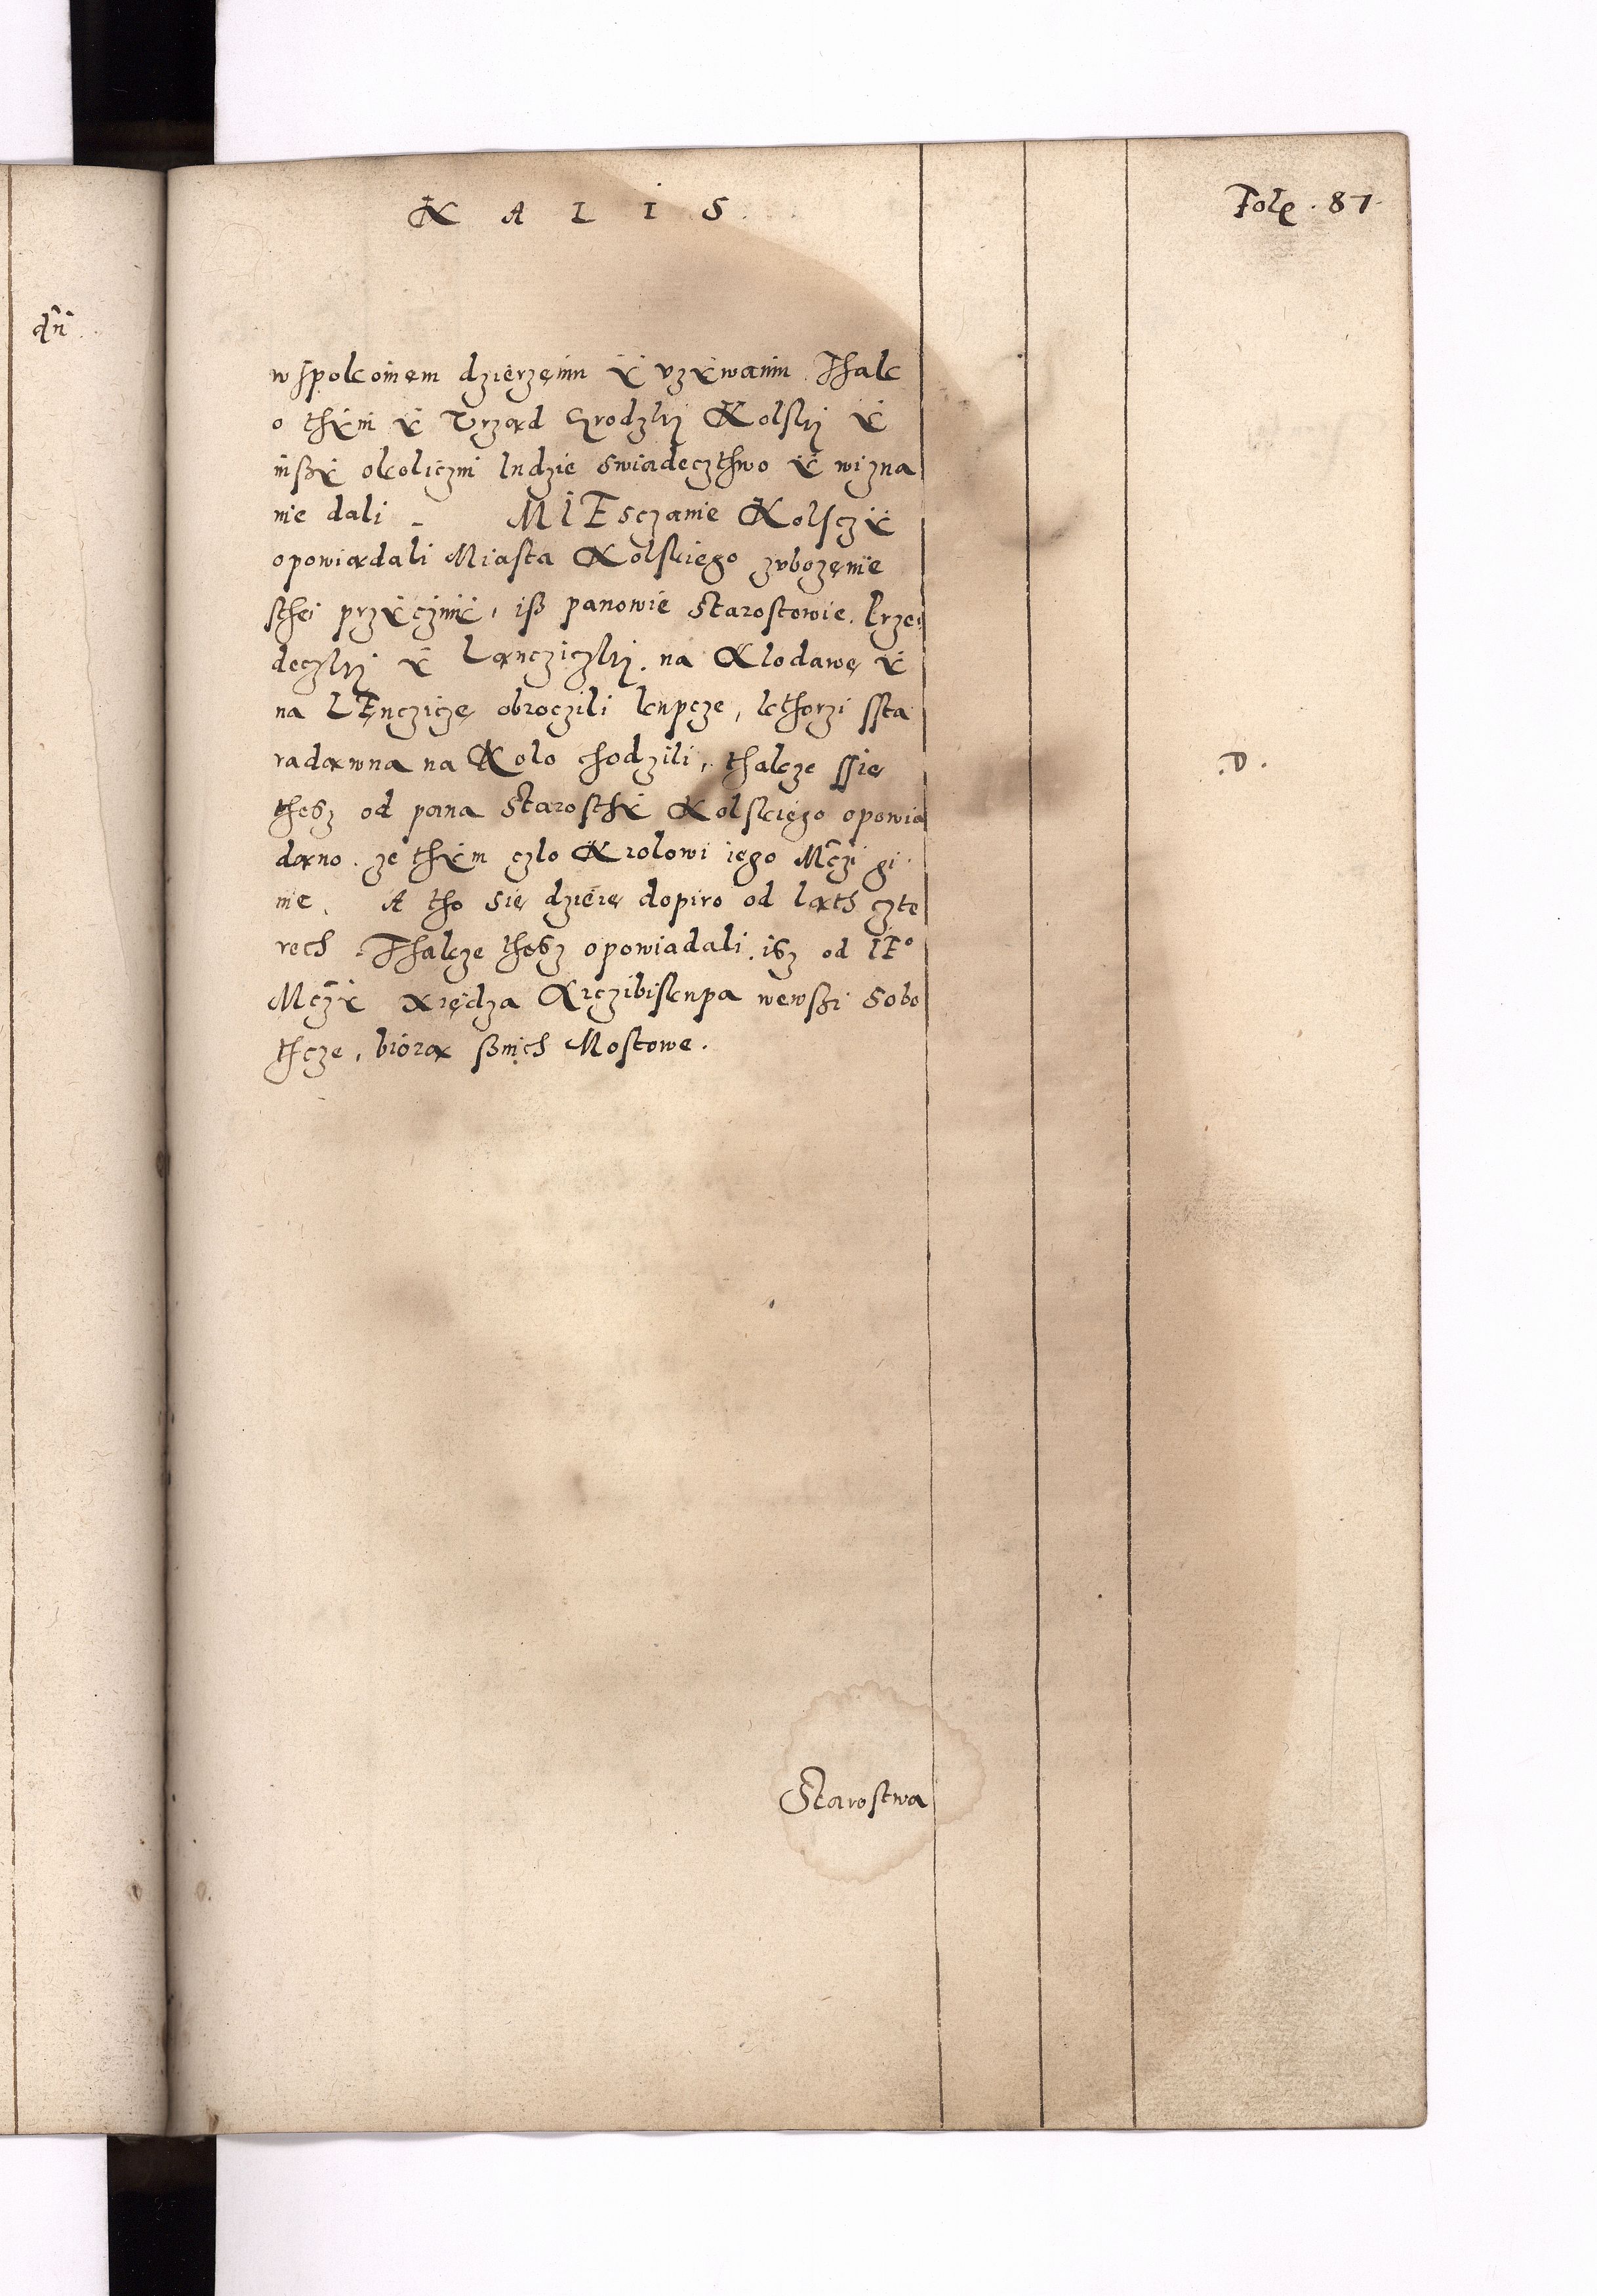 KALIS
Fole . 87.
dn̄
wspolconem dzierzęniu ÿ vzÿwaniu. Thak
o thÿm ÿ Vrząd Grodzki Kolski ÿ
inßÿ okoliczni ludzie swiadecztwo ÿ wizna
nie dali _ MIEsczanie Kolsczÿ
opowiadali Miasta Kolskiego zubozęnie
sthei przÿczÿnÿ, iß panowie Starostowie. Krze
deczki ÿ Lanczickki. na Klodawę ÿ
na LEnczicze obroczili kupcze, kthorzi ssta
radawna na Kolo chodzili, thakze ssie
thesz od pana Starosthÿ Kolskiego opowia
dano. ze thÿm czlo Krolowi iego Mczi gi
nie. A tho się dzieie dopiro od lath czte
rech. Thakze thesz opowiadali. isz od IE°
Mczÿ xiędza Arczibiskupa wewssi Sobo
thcze, biorą ßnich Mostowe.
.D.
Starostwa